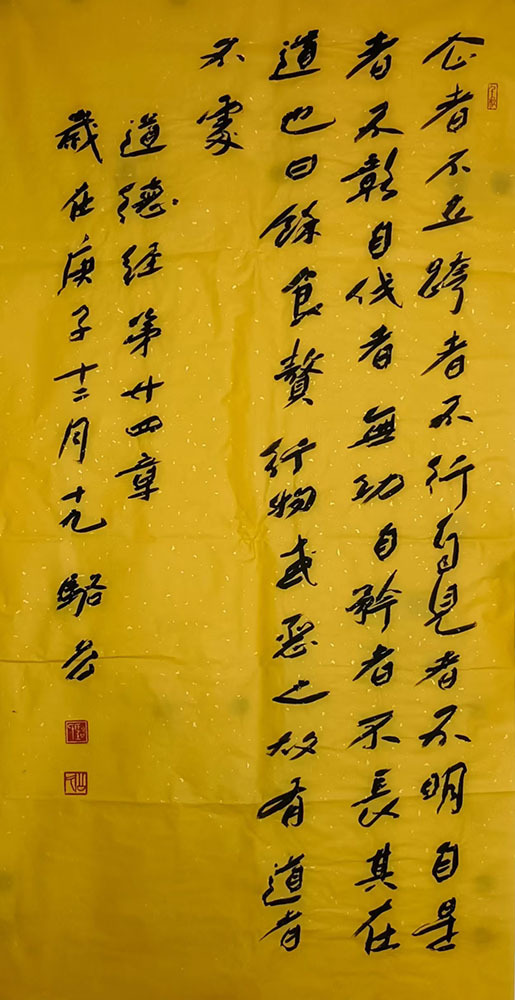 企者不立跨者不行自見者不明自是
者不彰自伐者無功自矜者不長其在
道也曰餘食贅行物或惡之故有道者
不處
道德经第廿四章
歲在庚子十二月十九 駱